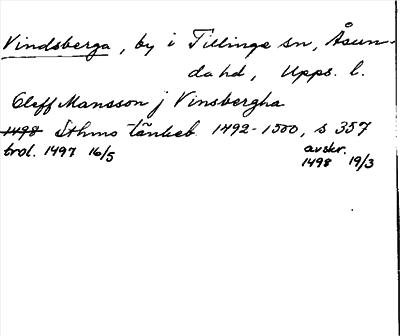 Vindsberga, by i Tillinge sn, Åsun-
da hd, Upps. l.
Oleff Mansson j Vinsbergha
1498 Sthms tänkeb. 1492-1500, s 357
trol. 1497 16/5
avskr.
1498 19/3